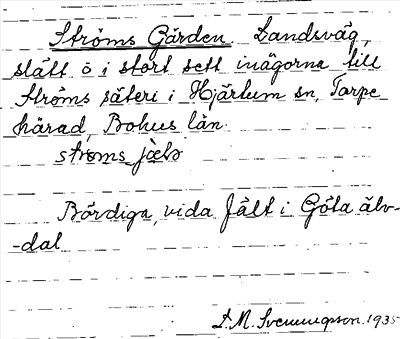 Ströms Gärden. Landsväg,
slått o i stort sett inägorna till
Ströms säteri i Hjärtum sn, Torpe
härad, Bohus län.
ströms
Bördiga, vida fält i Göta älv-
-dal
S.M. Svenungsson. 1935